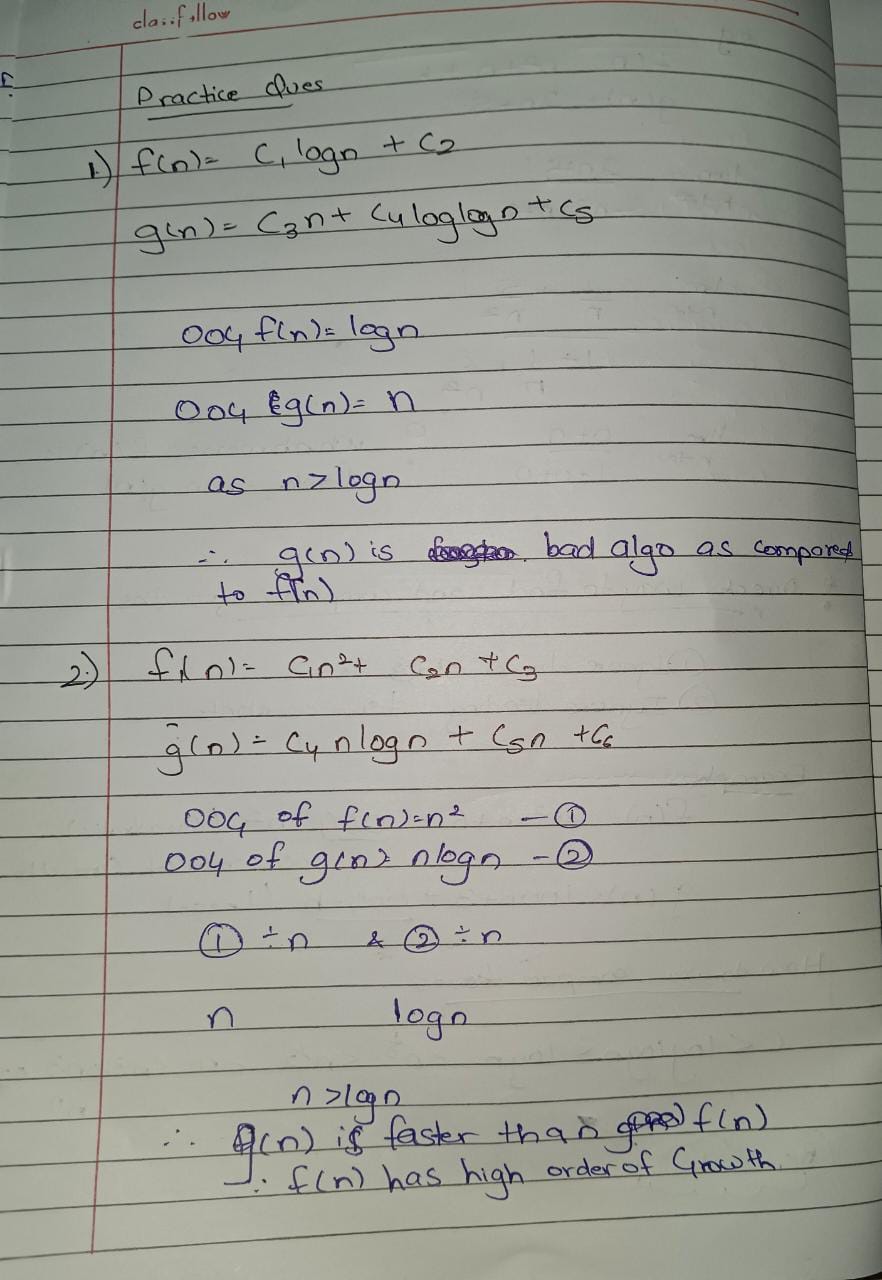 Practice Ques
1.) f(n)= C₁ logn + C₂
g(n)= C₃n + C₄loglogn + C₅
OOG f(n)= logn
OOG g(n)= n
as n>logn
∴ g(n) is bad algo as compared
to f(n)
2.) f(n)= C₁n² + C₂n + C₃
g(n)= C₄ nlogn + C₅n + C₆
OOG of f(n)=n² - ①
OOG of g(n)= nlogn - ②
① ÷ n & ② ÷ n
n logn
n>logn
∴ g(n) is faster than f(n)
∴ f(n) has high order of Growth